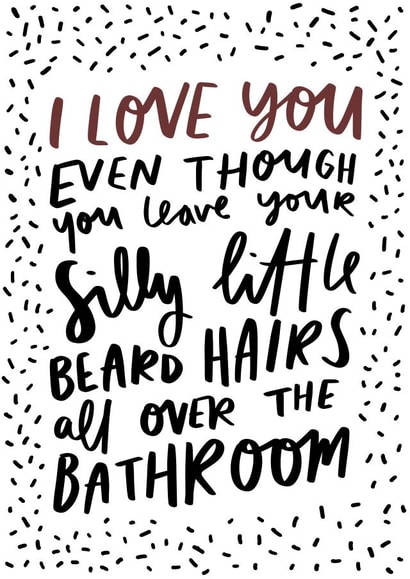 I LOVE YOU
EVEN THOUGH
you leave YOUR
silly little
BEARD HAIRS
all OVER THE
BATHROOM